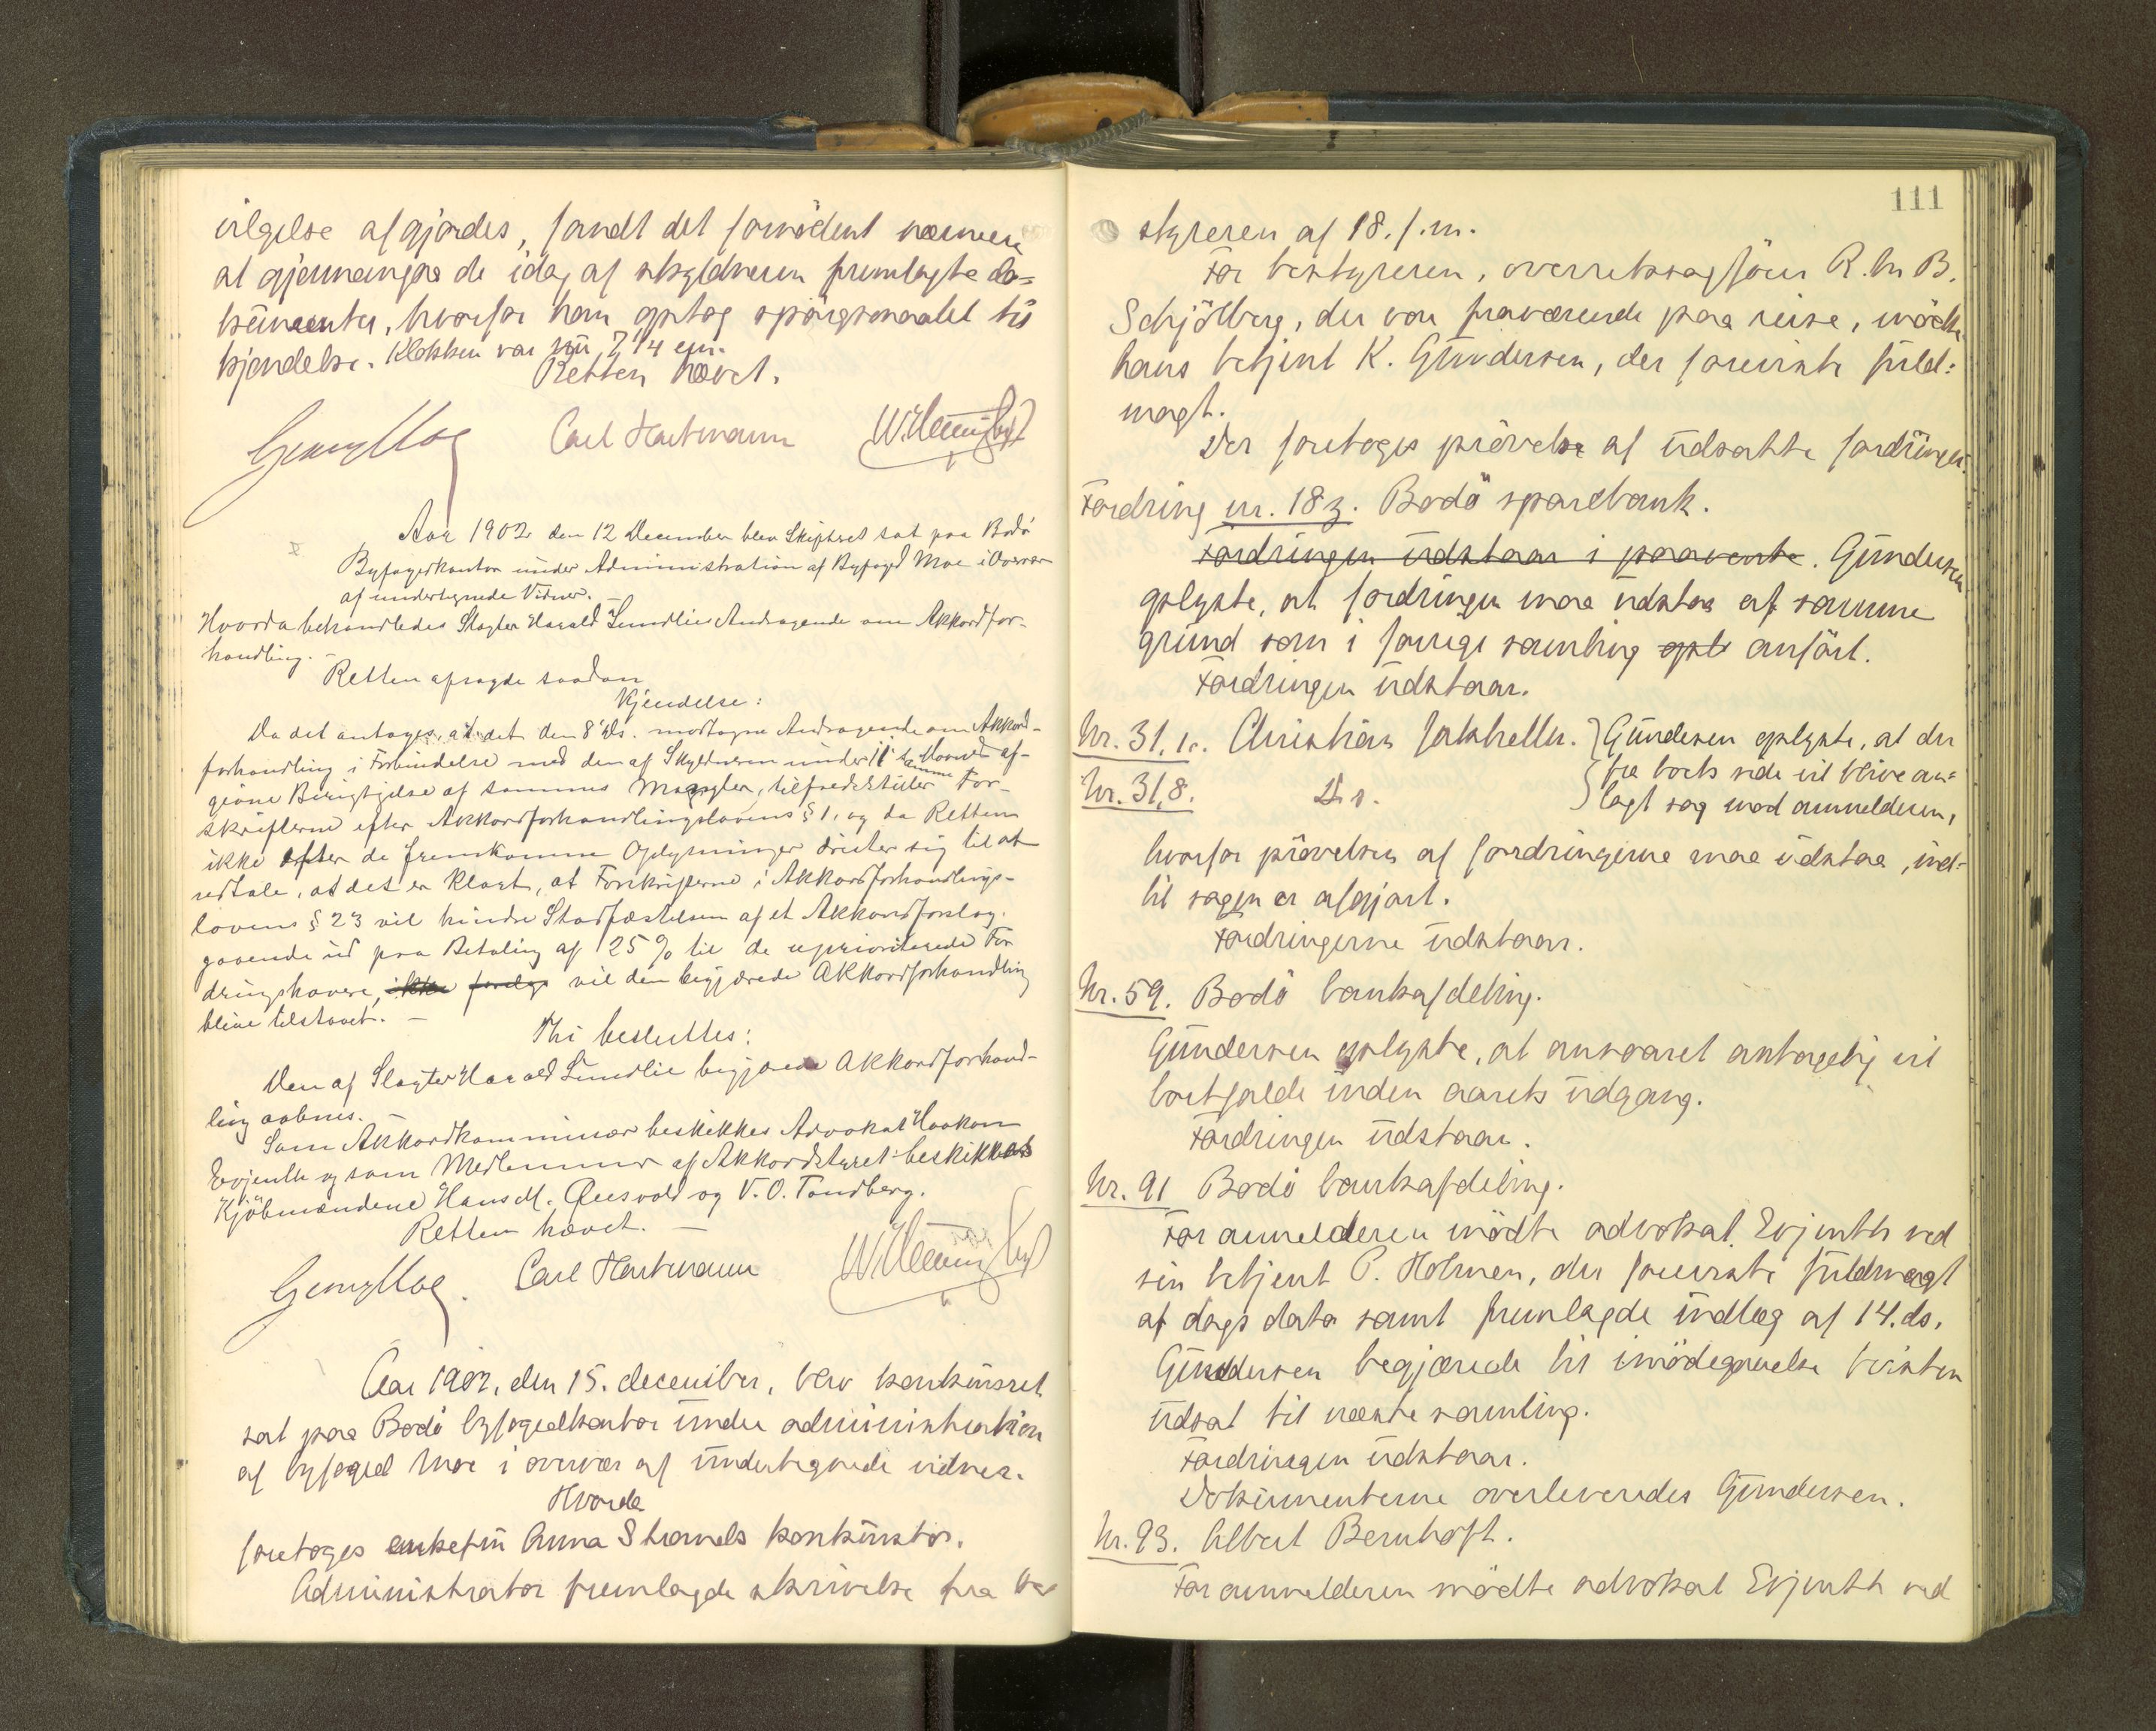 vilgelse afgjordes, fandt det fornödent nærmere
at gjennemgaa de idag af skyldneren fremlagte do-
kumenter, hvorfor han optog spörgsmaalet til
kjendelse. Klokken var nu 7 1/4 em.
Retten hævet.
Georg Moe Carl Hartmann
Aar 1902 den 12 December blev Skifteret sat paa Bodö
Byfogedkontor under Administration af Byfoged Moe i Overvær
af undertegnede Vidner. -
Hvorda behandledes Slagter Harald Lundlies Andragende om Akkordfor-
handling. -
Retten afsagde saadan
Kjendelse:
Da det antages, at det den 8' ds. modtagne Andragende om Akkord-
forhandling i Forbindelse med den af Skyldneren under 11' s. Maaned af-
givne Berigtigelse af sammes Mangler, tilfredsstiller For-
skrifterne efter Akkordforhandlingslovens § 1, og da Retten
ikke efter de fremkomne Oplysninger drister sig til at
udtale, at det er klart, at Forskrifterne i Akkordforhandlings-
lovens § 23 vil hindre Stadfæstelsen af et Akkordforslag.
gaaende ud paa Betaling af 25 % til de uprioriterede For
dringshavere, ikke vil den begjærede Akkordforhandling
blive tilstaaet. -
Thi besluttes:
Den af Slagter Harald Lundlie begjærede Akkordforhand-
ling aabnes. -
Som Akkordkommissær beskikkes Advokat Haakon
Evjenth og som Medlemmer af Akkordstyret beskikkes
Kjöbmændene Hans M. Qvesvold og V. O. Tandberg.
Retten hævet. -
Georg Moe. Carl Hartmann
Aar 1902, den 15. december, blev konkursret
sat paa Bodö byfogedkontor under administration
af byfoged Moe i overvær af undertegnede vidner.
Hvorda
foretoges enkefru Anna Strands konkursbo.
Administrator fremlagde skrivelse fra be
111
styreren af 18. f. m.
For bestyreren, overretssagförer R. M. B.
Schjölberg, der var fraværende paa reise, mödte
hans betjent K. Gundersen, der foreviste fuld-
magt.
Der foretoges prövelse af udsatte fordringer.
Fordring nr. 183. Bodö sparebank.
Fordringen udstaar i paavente. Gundersen
oplyste, at fordringen maa udstaa af samme
grund som i forrige samling opl anfört.
Fordringen udstaar.
Nr. 31, 1c. Christian Jakhelln. } Gundersen oplyste, at der
fra boets side vil blive an-
Nr. 31, 8. Ds. lagt sag mod anmelderen,
hvorfor prövelsen af fordringerne maa udstaa, ind-
til sagen er afgjort.
Fordringerne udstaar.
Nr. 59. Bodö bankafdeling.
Gundersen oplyste, at ansvaret antagelig vil
bortfalde inden aarets udgang.
Fordringen udstaar.
Nr. 91 Bodö bankafdeling.
For anmelderen mödte advokat Evjenth ved
sin betjent P. Holmen, der foreviste fuldmagt
af dags dato samt fremlagde indlæg af 14. ds.
Gundersen begjærede til imödegaaelse tvisten
udsat til næste samling.
Fordringen udstaar.
Dokumenterne overleveredes Gundersen.
Nr. 93. Albert Bernhoft.
For anmelderen mödte advokat Evjenth ved